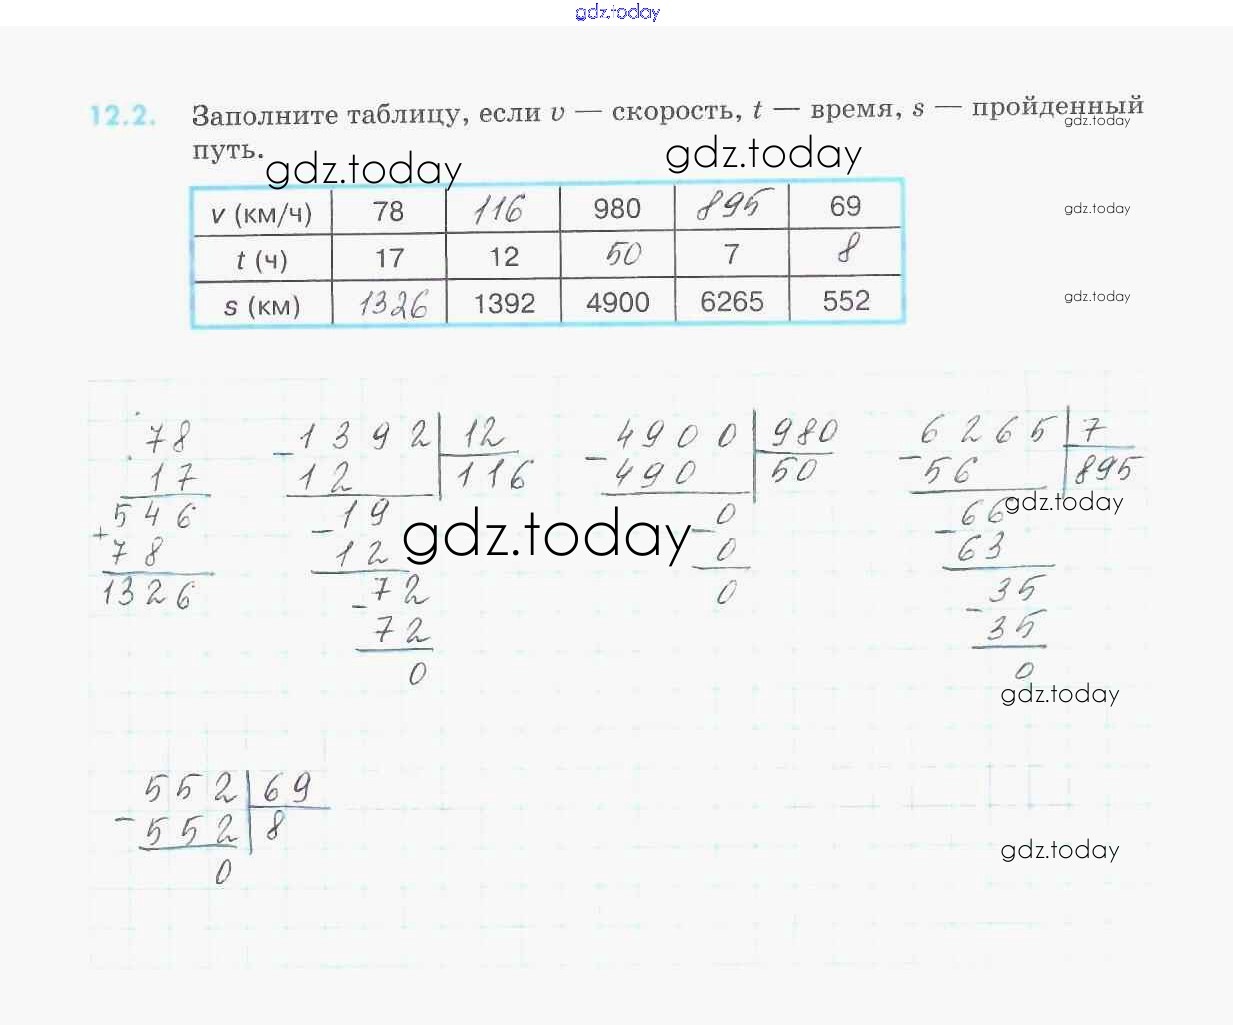 gdz.today
12.2. Заполните таблицу, если v — скорость, t — время, s — пройденный
gdz.today
путь.
gdz.today gdz.today
v (км/ч) 78 116 980 895 69
gdz.today
t (ч) 17 12 50 7 8
s (км) 1326 1392 4900 6265 552
gdz.today
78
17
546
+
78
1326
- 1392 12
12 116
- 19
12
- 72
72
0
gdz.today
- 4900 980
490 50
- 0
0
0
- 6265 7
56 895
gdz.today
- 66
63
- 35
35
0
gdz.today
- 552 69
552 8
0
gdz.today